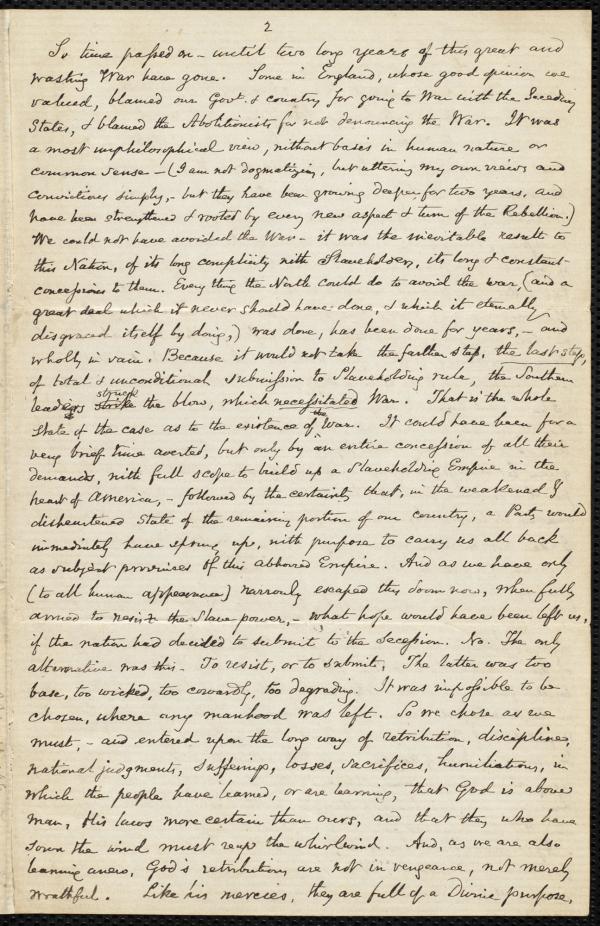 2
So time passed on – until two long years of this great and
wasting War have gone. Some in England, whose good opinion we
valued, blamed our Govt. & country for going to War with the Seceding
States, & blamed the Abolitionists for not denouncing the War. It was
a most unphilosophical view, without basis in human nature or
common sense – (I am not dogmatizing, but uttering my own views and
convictions simply, – but they have been growing deeper, for two years, and
have been strengthened & rooted by every new aspect & turn of the Rebellion.)
We could not have avoided the War – it was the inevitable result to
this Nation, of its long complicity with Slaveholders, its long & constant
concessions to them. Every thing the North could do to avoid the war, (and a
great deal which it never should have done, & which it eternally
disgraced itself by doing,) was done, has been done for years, – and
wholly in vain. Because it would not take the farther step, the last step,
of total & unconditional submission to Slaveholding rule, the Southern
struck
leaders stroke the blow, which necessitated War. That is the whole
the
state of the case as to the existence of War. It could have been for a
very brief time averted, but only by an entire concession of all their
demands, with full scope to build up a Slaveholding Empire in the
heart of America, – followed by the certainty that, in the weakened &
disheartened State of the remaining portion of our country, a Party would
immediately have sprung up, with purpose to carry us all back
as subject provinces of this abhorred Empire. And as we have only
(to all human appearance) narrowly escaped this doom now, when fully
armed to resist the Slave power, – what hope would have been left us,
if the nation had decided to submit to the Secession. No. The only
alternative was this – To resist, or to submit. The latter was too
base, too wicked, too cowardly, too degrading. It was impossible to be
chosen, where any manhood was left. So we chose as we
must, – and entered upon the long way of retribution, discipline,
national judgments, sufferings, losses, sacrifices, humiliations, in
which the people have learned, or are learning, that God is above
man, His laws more certain than ours, and that they who have
sown the wind must reap the whirlwind. And, as we are also
learning anew, God's retributions are not in vengeance, not merely
wrathful. Like his mercies, they are full of a Divine purpose,